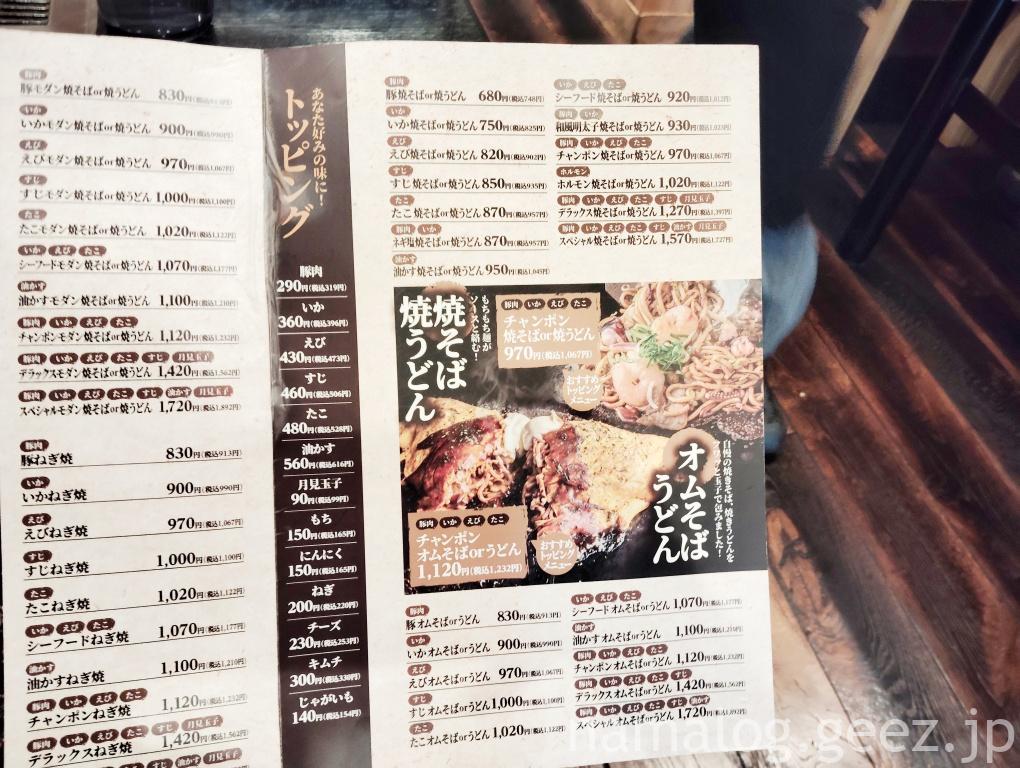 豚肉
豚モダン焼そばor焼うどん 830円(税込913円)
いか
いかモダン焼そばor焼うどん 900円(税込990円)
えび
えびモダン焼そばor焼うどん 970円(税込1,067円)
すじ
すじモダン焼そばor焼うどん 1,000円(税込1,100円)
たこ
たこモダン焼そばor焼うどん 1,020円(税込1,122円)
いか えび たこ
シーフードモダン焼そばor焼うどん 1,070円(税込1,177円)
油かす
油かすモダン焼そばor焼うどん 1,100円(税込1,210円)
豚肉 いか えび たこ
チャンポンモダン焼そばor焼うどん 1,120円(税込1,232円)
豚肉 いか えび たこ すじ 月見玉子
デラックスモダン焼そばor焼うどん 1,420円(税込1,562円)
豚肉 いか えび たこ すじ 油かす 月見玉子
スペシャルモダン焼そばor焼うどん 1,720円(税込1,892円)
豚肉
豚ねぎ焼 830円(税込913円)
いか
いかねぎ焼 900円(税込990円)
えび
えびねぎ焼 970円(税込1,067円)
すじ
すじねぎ焼 1,000円(税込1,100円)
たこ
たこねぎ焼 1,020円(税込1,122円)
いか えび たこ
シーフードねぎ焼 1,070円(税込1,177円)
油かす
油かすねぎ焼 1,100円(税込1,210円)
豚肉 いか えび たこ
チャンポンねぎ焼 1,120円(税込1,232円)
豚肉 いか えび たこ すじ 月見玉子
デラックスねぎ焼 1,420円(税込1,562円)
豚肉 いか えび たこ すじ 油かす 月見玉子
あなた好みの味に!
トッピング
豚肉
290円(税込319円)
いか
360円(税込396円)
えび
430円(税込473円)
すじ
460円(税込506円)
たこ
480円(税込528円)
油かす
560円(税込616円)
月見玉子
90円(税込99円)
もち
150円(税込165円)
にんにく
150円(税込165円)
ねぎ
200円(税込220円)
チーズ
230円(税込253円)
キムチ
300円(税込330円)
じゃがいも
140円(税込154円)
豚肉
豚焼そばor焼うどん 680円(税込748円)
いか
いか焼そばor焼うどん 750円(税込825円)
えび
えび焼そばor焼うどん 820円(税込902円)
すじ
すじ焼そばor焼うどん 850円(税込935円)
たこ
たこ焼そばor焼うどん 870円(税込957円)
豚肉 いか
ネギ塩焼そばor焼うどん 870円(税込957円)
油かす
油かす焼そばor焼うどん 950円(税込1,045円)
いか えび たこ
シーフード焼そばor焼うどん 920円(税込1,012円)
豚肉 いか
和風明太子焼そばor焼うどん 930円(税込1,023円)
豚肉 いか えび たこ
チャンポン焼そばor焼うどん 970円(税込1,067円)
ホルモン
ホルモン焼そばor焼うどん 1,020円(税込1,122円)
豚肉 いか えび たこ すじ 月見玉子
デラックス焼そばor焼うどん 1,270円(税込1,397円)
豚肉 いか えび たこ すじ 油かす 月見玉子
スペシャル焼そばor焼うどん 1,570円(税込1,727円)
もちもち麺が
ソースと絡む!
焼そば
焼うどん
豚肉 いか えび たこ
チャンポン
焼そばor焼うどん
970円(税込1,067円)
おすすめ
トッピング
メニュー
自慢の焼きそば、焼きうどんを
玉子で包みました!
オムそば
うどん
豚肉 いか えび たこ
チャンポン
オムそばorうどん
1,120円(税込1,232円)
おすすめ
トッピング
メニュー
豚肉
豚オムそばorうどん 830円(税込913円)
いか
いかオムそばorうどん 900円(税込990円)
えび
えびオムそばorうどん 970円(税込1,067円)
すじ
すじオムそばorうどん 1,000円(税込1,100円)
たこ
たこオムそばorうどん 1,020円(税込1,122円)
いか えび たこ
シーフードオムそばorうどん 1,070円(税込1,177円)
油かす
油かすオムそばorうどん 1,100円(税込1,210円)
豚肉 いか えび たこ
チャンポンオムそばorうどん 1,120円(税込1,232円)
豚肉 いか えび たこ すじ
デラックスオムそばorうどん 1,420円(税込1,562円)
豚肉 いか えび たこ すじ 油かす
スペシャルオムそばorうどん 1,720円(税込1,892円)
hamalog.geez.jp